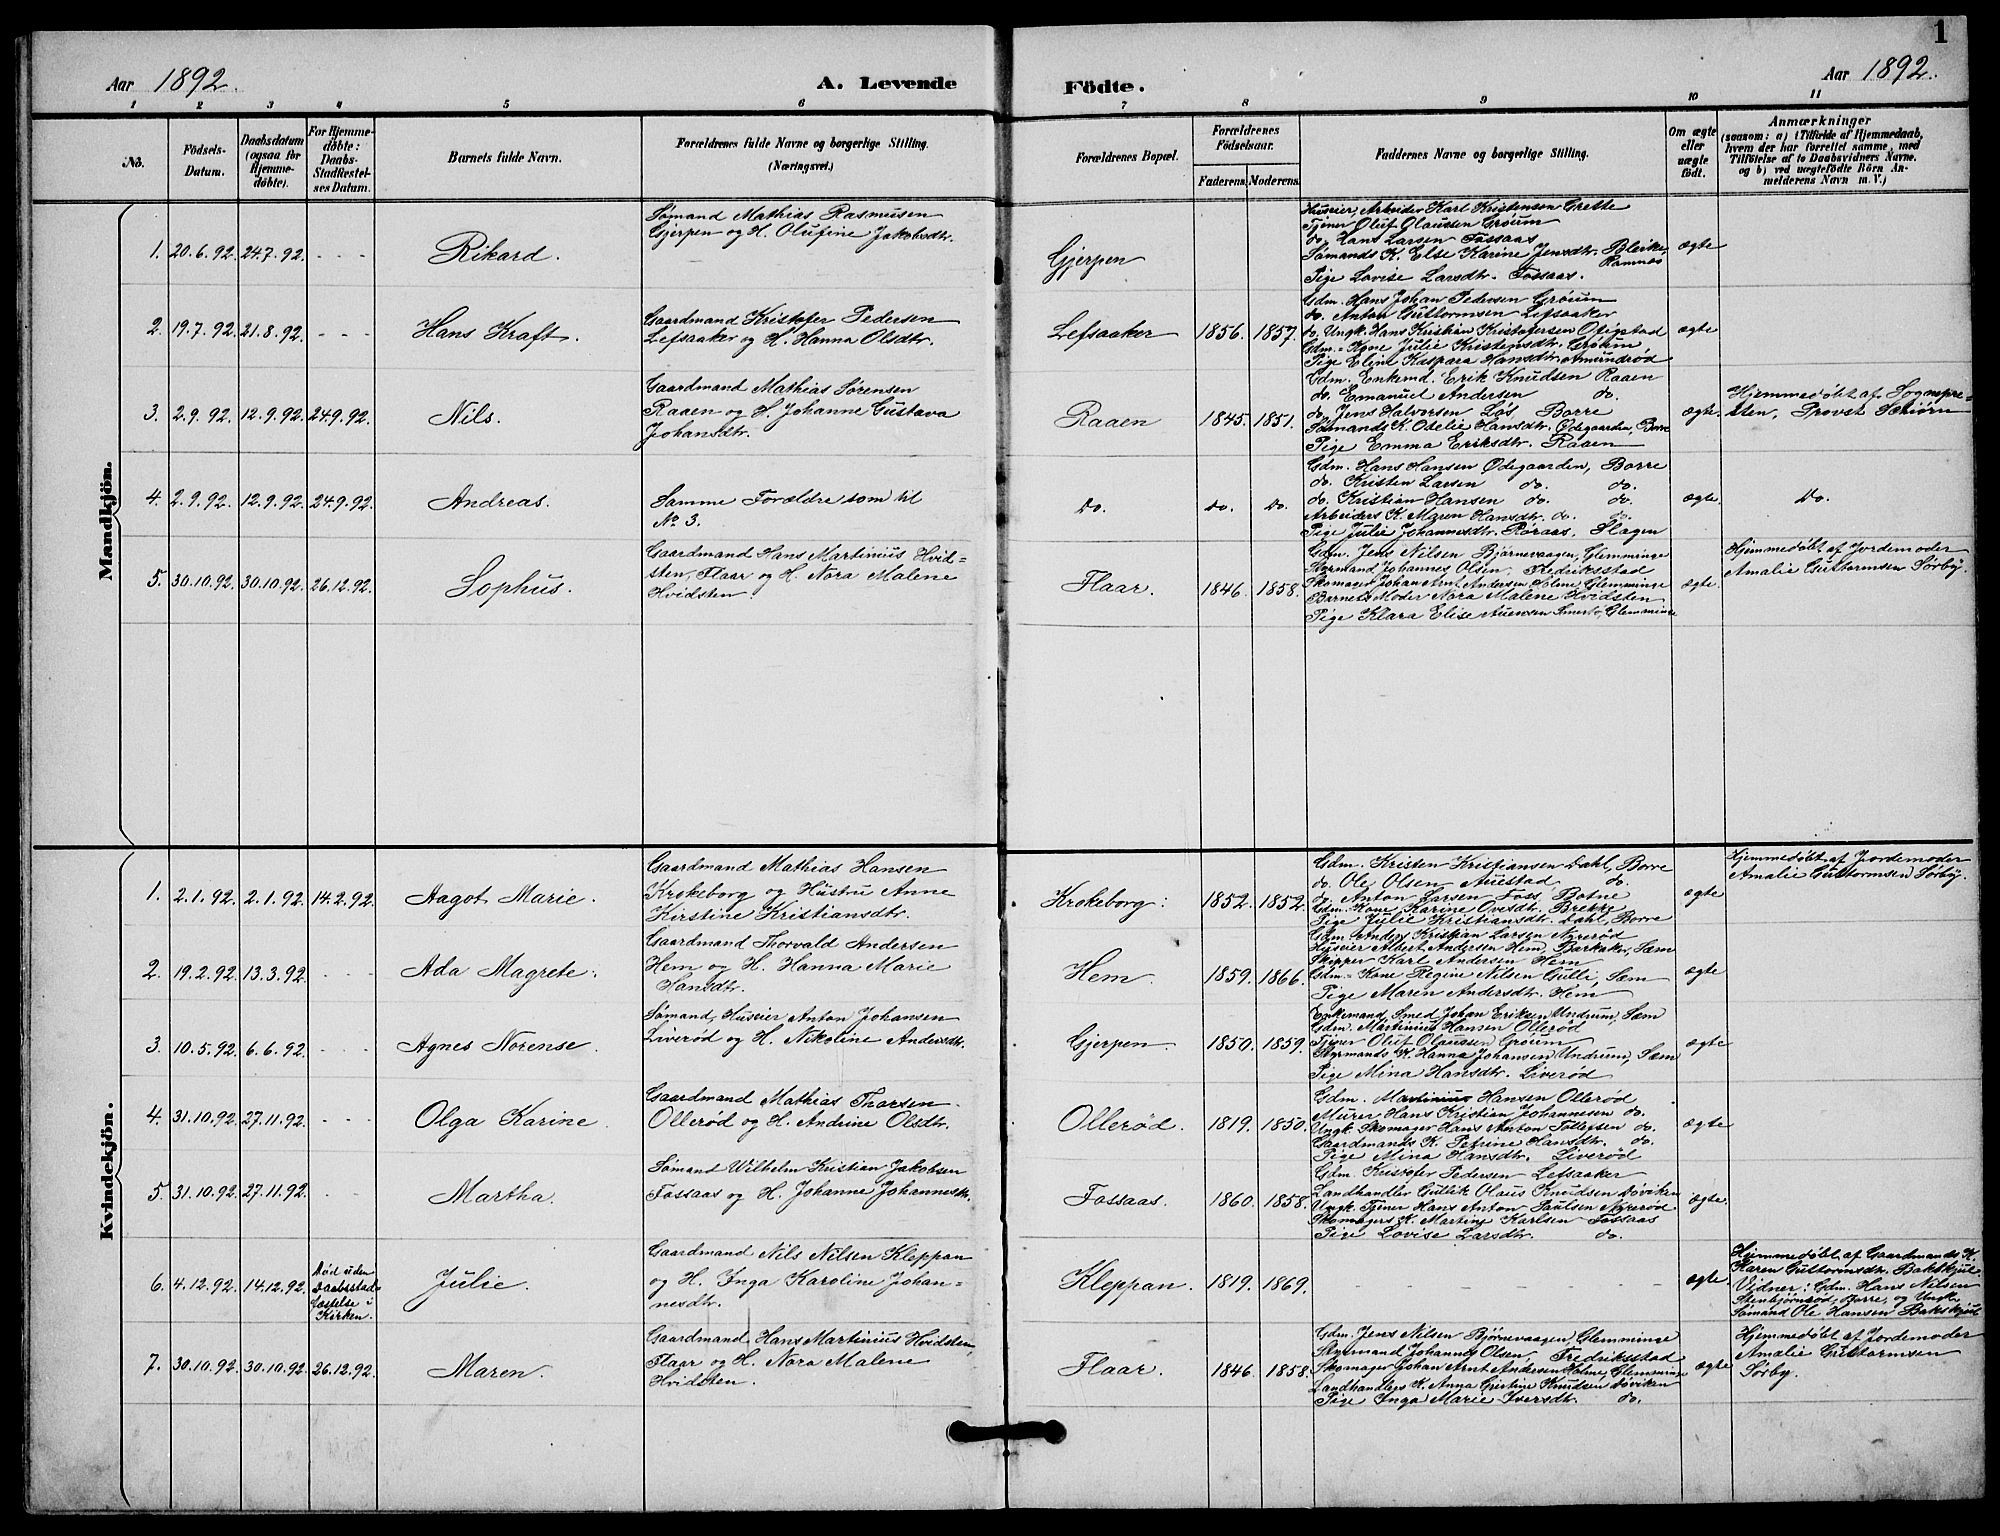 1
Aar 1892.
A. Levende
Födte.
Aar 1892.
1 2 3 4 5 6 7 8 9 10 11
No.
Födsels-
Datum.
Daabsdatum
(ogsaa for
Hjemme-
døbte).
For Hjemme-
døbte:
Daabs-
Stadfæstel-
ses Datum.
Barnets fulde Navn.
Forældrenes fulde Navne og borgerlige Stilling.
(Næringsvei.)
Forældrenes Bopæl.
Forældrenes
Födselsaar.
Faderens. Moderens.
Faddernes Navne og borgerlige Stilling.
Om ægte
eller
uægte
födt.
Anmærkninger
(saasom: a) i Tilfælde af Hjemmedaab,
hvem der har forrettet samme, med
Tilföielse af to Daabsvidners Navne.
og b) ved uægtefödte Börn An-
melderens Navn m. V.)
Mandkjön.
1. 20.6.92. 24.7.92. - - -
Rikard.
Sømand Mathias Rasmusen
Gjerpen og H. Olufine Jakobsdtr.
Gjerpen
Huseier, Arbeider Karl Kristensen Grette
Tjener Oluf Olaussen Grøum
do. Hans Larsen Fossaas
Sømands K. Else Karine Jensdtr. Bleike,
Ramnæs
Pige Lovise Larsdtr. Fossaas.
ægte
2. 19.7.92. 21.8.92. - - -
Hans Kraft.
Gaardmand Kristofer Pedersen
Lefsaaker og H. Hanna Olsdtr.
Lefsaaker
1856. 1857.
Gdm. Hans Johan Pedersen Grøum
do. Anton Guttormsen Lefsaaker
do. Ungk. Hans Kristian Kristofersen Ofigstad
Gdm.=Kone Julie Kristensdtr. Grøum
Pige Elina Kaspara Hansdtr. Amundrød
ægte
3. 2.9.92. 12.9.92. 24.9.92.
Nils.
Gaardmand Mathias Sørensen
Raaen og H. Johanne Gustava
Johansdtr.
Raaen
1845. 1851.
Gdm. Enkemd. Erik Knudsen Raaen
do. Emanuel Andersen do.
do. Jens Halvorsen Løs Borre
Sømands K. Otelie Hansdtr. Ødegaarden, Borre
Pige Emma Eriksdtr. Raaen
ægte.
Hjemmedøbt af Sognepre-
sten, Provst Schiørn
4. 2.9.92. 12.9.92. 24.9.92.
Andreas.
Samme Forældre som til
No 3.
Do.
Do. Do.
Gdm. Hans Hansen Ødegaarden, Borre
do. Kristen Larsen do. do.
do. Kristian Hansen do. do.
Arbeiders K. Maren Hansdtr. do. do.
Pige Julie Johannesdtr. Røraas, Slagen
ægte.
Do.
5. 30.10.92. 30.10.92. 26.12.92.
Sophus.
Gaardmand Hans Martinius Hvid=
sten, Flaar og H. Nora Malene
Hvidsten
Flaar.
1846. 1858.
Gdm. Jens Nilsen Bjørnevaagen, Glemminge
Styrmand Johannes Olsen, Fredriksstad
Skomager Johan Arnt Andersen Holme, Glemminge
Barnets Moder Nora Malene Hvidsten
Pige Klara Elise Auensen Smertu, Glemminge
ægte.
Hjemmedøbt af Jordemoder
Amalie Guttormsen Sørby.
Kvindekjön.
1. 2.1.92. 2.1.92. 14.2.92.
Aagot Marie.
Gaardmand Mathias Hansen
Krokeborg og Hustru Anne
Kirstine Kristiansdtr.
Krokeborg:
1852. 1852.
Gdm. Kristen Kristiansen Dahl, Borre
do. Ole Olsen Auestad do.
do. Anton Larsen Foss, Botne
Gdm. Kone Karine Ovesdtr. Brekke
Pige Julie Kristiansdtr. Dahl, Borre
ægte
Hjemmedøbt af Jordemoder
Amalie Guttormsen Sørby.
2. 19.2.92. 13.3.92. - - -
Ada Magrete.
Gaardmand Thorvald Andersen
Hem og H. Hanna Marie
Hansdtr.
Hem.
1859. 1866.
Gdm. Anders Kristian Larsen Nyrerød
Huseier Albert Andersen Hem, Barkaker, Sæm
Skipper Karl Andersen Hem
Gdm.=Kone Regine Nilsen Gulli, Sæm
Pige Maren Andersdtr. Hem
ægte
3. 10.5.92. 6.6.92. - - -
Agnes Norense.
Sømand, Huseier Anton Johansen
Liverød og H. Nikoline Andersdtr.
Gjerpen.
1850. 1859.
Enkemand, Smed Johan Eriksen Undrum, Sæm
Gdm. Martinius Hansen Ollerød
Tjener Oluf Olaussen Grøum
Styrmands K. Hanna Johansen Undrum, Sæm
Pige Mina Hansdtr. Liverød
ægte
4. 31.10.92. 27.11.92. - - -
Olga Karine.
Gaardmand Mathias Thorsen
Ollerød og H. Andrine Olsdtr.
Ollerød.
1819. 1850.
Gdm. Martinius Hansen Ollerød
Murer Hans Kristian Johannesen do.
Ungk. Skomager Hans Anton Tollefsen do.
Gaardmands K. Petrine Hansdtr. do.
Pige Mina Hansdtr. Liverød
ægte
5. 31.10.92. 27.11.92. - -
Martha.
Sømand Wilhelm Kristian Jakobsen
Fossaas og H. Johanne Johannesdtr.
Fossaas.
1860. 1858.
Gdm. Kristofer Pedersen Lefsaaker
Landhandler Gullik Olaus Knudsen Døviken
Ungk. Tjener Hans Anton Paulsen Nyrerød
Skomagers K. Martine Karlsen Fossaas
Pige Lovise Larsdtr. do.
ægte.
6. 4.12.92. 14.12.92.
Død uden
Daabsstad=
fæstelse i
Kirken.
Julie.
Gaardmand Nils Nilsen Kleppan
og H. Inga Karoline Johan=
nesdtr.
Kleppan.
1819. 1869.
- - - - -
ægte.
Hjemmedøbt af Gaardmands K.
Karen Guttormsdtr. Bakskjul.
Vidner: Gdm. Hans Nilsen
Stenbjørnrød, Borre, og Ungk.
Sømand Ole Hansen Bakskjul
7. 30.10.92. 30.10.92. 26.12.92.
Maren.
Gaardmand Hans Martinius Hvidsten,
Flaar og H. Nora Malene
Hvidsten.
Flaar.
1846. 1858.
Gdm. Jens Nilsen Bjørnevaagen, Glemminge
Styrmand Johannes Olsen, Fredriksstad
Skomager Johan Arnt Andersen Holme, Glemminge
Landhandlers K. Anna Gristine Knudsen Døviken
Pige Inga Marie Iversdtr. do.
ægte.
Hjemmedøbt af Jordemoder
Amalie Guttormsen
Sørby.